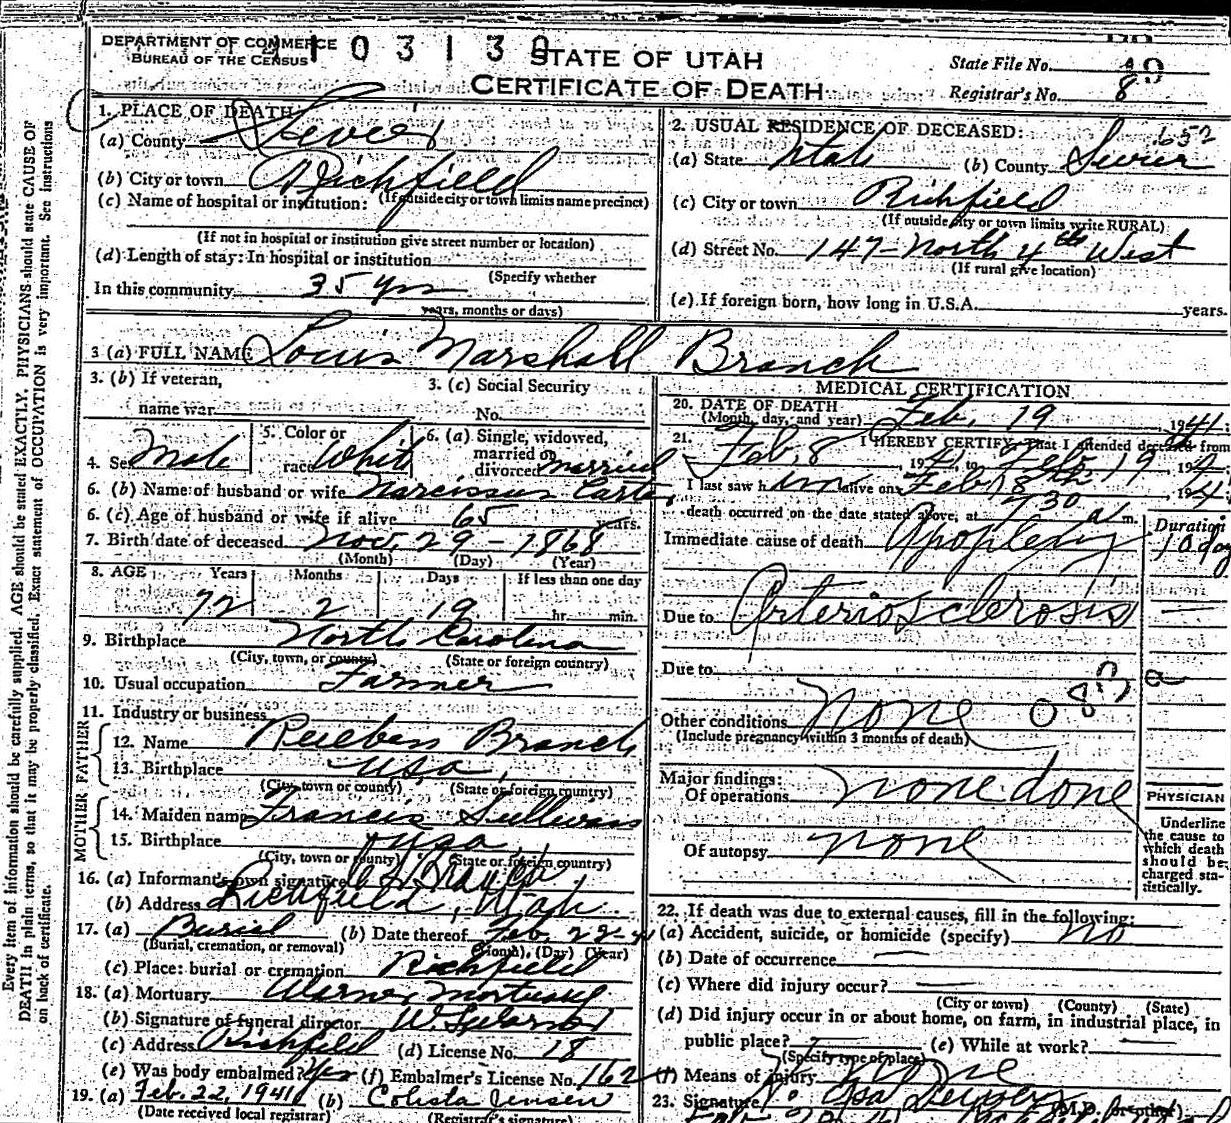 DEPARTMENT OF COMMERCE
BUREAU OF THE CENSUS
STATE OF UTAH
CERTIFICATE OF DEATH
State File No. 49
Registrar's No. 8
1. PLACE OF DEATH:
(a) County Sevier
(b) City or town Richfield
(If outside city or town limits name precinct)
(c) Name of hospital or institution:
(If not in hospital or institution give street number or location)
(d) Length of stay: In hospital or institution
(Specify whether
In this community 35 yrs
years, months or days)
2. USUAL RESIDENCE OF DECEASED:
(a) State Utah (b) County Sevier
(c) City or town Richfield
(If outside city or town limits write RURAL)
(d) Street No. 147-North 4th West
(If rural give location)
(e) If foreign born, how long in U.S.A. years.
3 (a) FULL NAME Louis Marshall Branch
3. (b) If veteran,
name war
3. (c) Social Security
No.
4. Sex Male
5. Color or
race White
6. (a) Single, widowed,
married or
divorced married
6. (b) Name of husband or wife Narcissus Carter
6. (c) Age of husband or wife if alive 65 years.
7. Birth date of deceased Nov. 29-1868
(Month) (Day) (Year)
8. AGE Years Months Days If less than one day
72 2 19 hr. min.
9. Birthplace North Carolina
(City, town, or county) (State or foreign country)
10. Usual occupation Farmer
11. Industry or business
FATHER
12. Name Rueben Branch
13. Birthplace USA,
(City, town or county) (State or foreign country)
MOTHER
14. Maiden name Francis Sullivan
15. Birthplace USA
(City, town or county) (State or foreign country)
16. (a) Informant's own signature Branch
(b) Address Richfield, Utah
17. (a) Burial (b) Date thereof Feb. 22-41
(Burial, cremation, or removal) (Month) (Day) (Year)
(c) Place: burial or cremation Richfield
18. (a) Mortuary Warner Mortuary
(b) Signature of funeral director
(c) Address Richfield (d) License No. 18
(e) Was body embalmed? Yes (f) Embalmer's License No. 162
19. (a) Feb. 22, 1941 (b) Colista Jensen
(Date received local registrar) (Registrar's signature)
MEDICAL CERTIFICATION
20. DATE OF DEATH
(Month, day, and year) Feb. 19 1941;
21. I HEREBY CERTIFY That I attended deceased from
Feb. 8 1941, to Feb 19 1941
I last saw him alive on Feb 18th 1941
death occurred on the date stated above, at 7 30 a m.
Duration
Immediate cause of death Apoplexy 10 day
Due to Arteriosclerosis
Due to
083 a
Other conditions None
(Include pregnancy within 3 months of death)
Major findings:
Of operations none done
Of autopsy none
PHYSICIAN
Underline
the cause to
which death
should be
charged sta-
tistically.
22. If death was due to external causes, fill in the following:
(a) Accident, suicide, or homicide (specify) no
(b) Date of occurrence
(c) Where did injury occur?
(City or town) (County) (State)
(d) Did injury occur in or about home, on farm, in industrial place, in
public place? (e) While at work?
(Specify type of place)
(f) Means of injury none
23. Signature
Every item of information should be carefully supplied. AGE should be stated EXACTLY. PHYSICIANS should state CAUSE OF
DEATH in plain terms, so that it may be properly classified. Exact statement of OCCUPATION is very important. See instructions
on back of certificate.